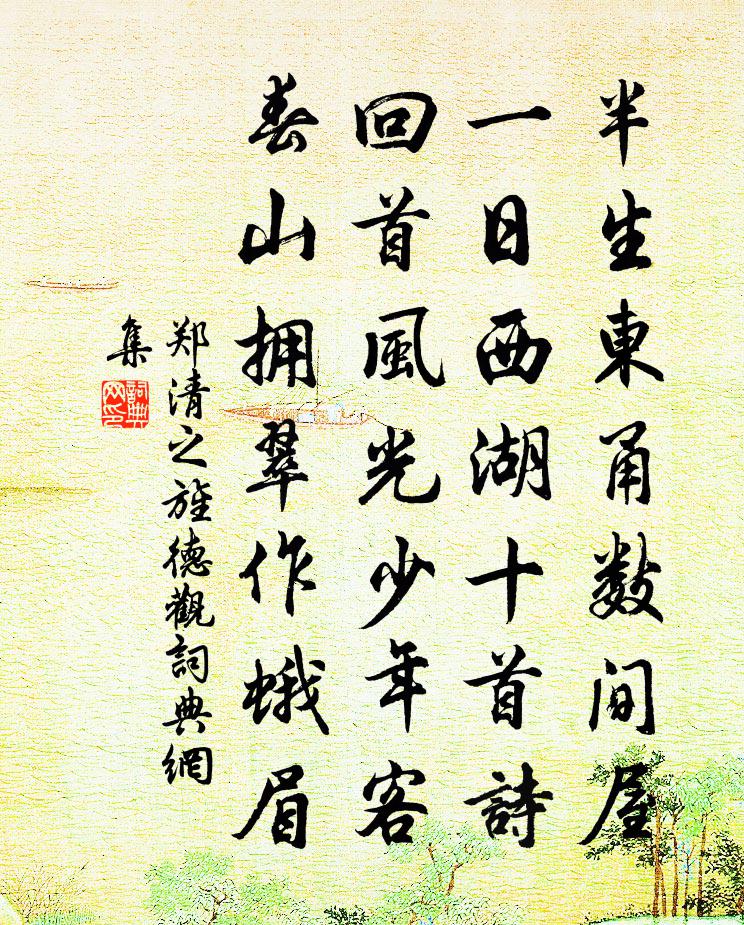 半生東甬数間屋
一日西湖十首詩
回首風光少年客
春山拥翠作蛾眉
郑清之旌德觀詞典網
集
詞典網印